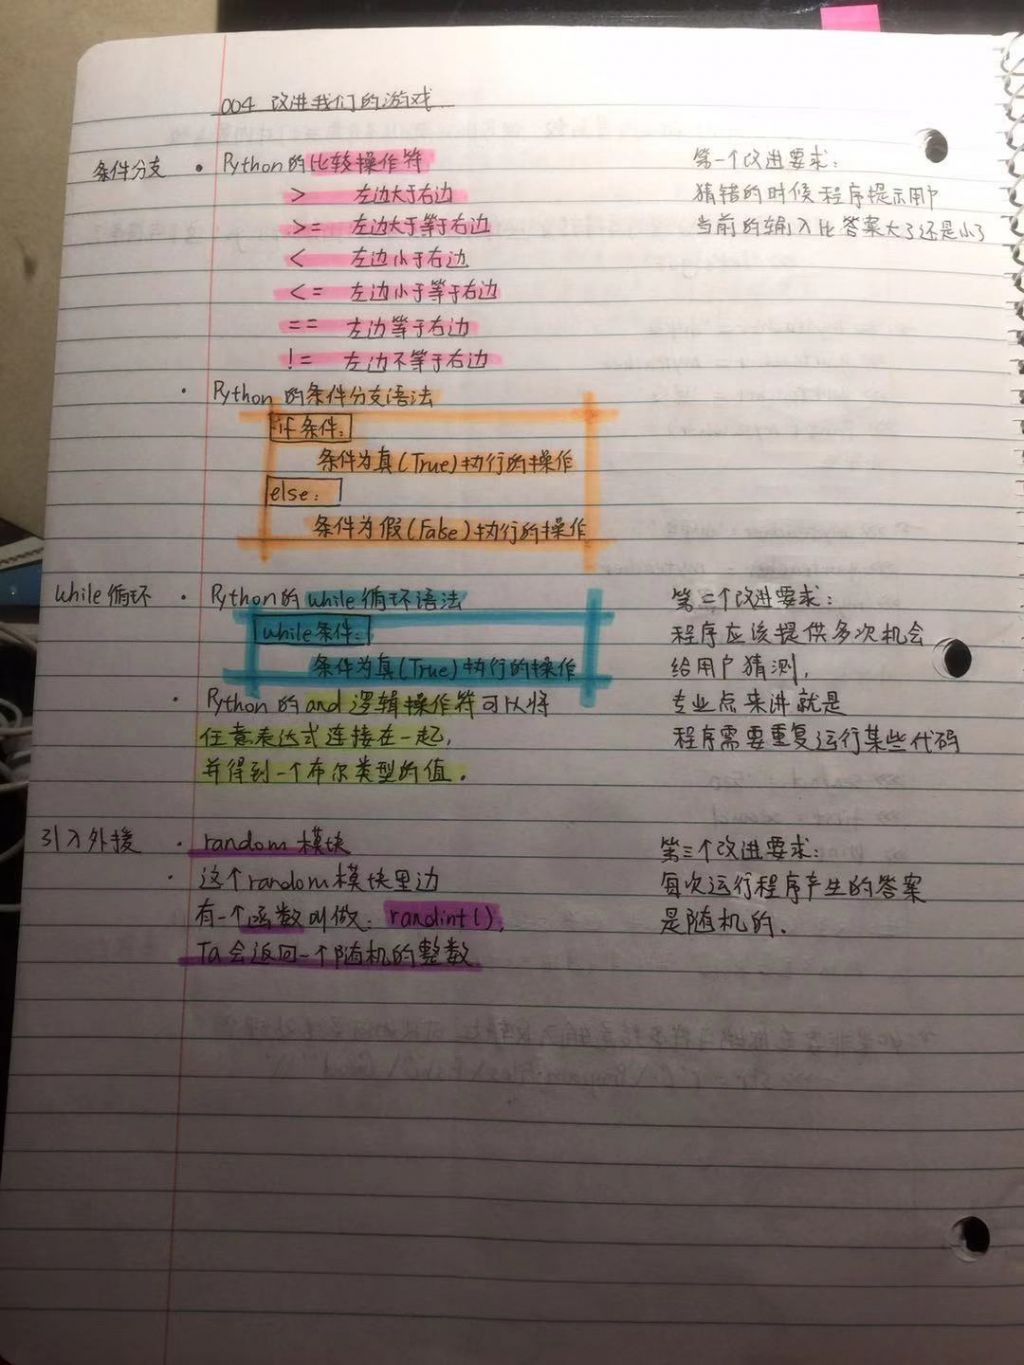 004 改进我们的游戏
条件分支 · Python的比较操作符
> 左边大于右边
>= 左边大于等于右边
< 左边小于右边
<= 左边小于等于右边
== 左边等于右边
!= 左边不等于右边
第一个改进要求:
猜错的时候程序提示用户
当前的输入比答案大了还是小了
· Python的条件分支语法
if 条件:
条件为真(True)执行的操作
else:
条件为假(False)执行的操作
while循环 · Python的while循环语法
while条件:
条件为真(True)执行的操作
· Python的and逻辑操作符可以将
任意表达式连接在一起,
并得到一个布尔类型的值。
第二个改进要求:
程序应该提供多次机会
给用户猜测,
专业点来讲就是
程序需要重复运行某些代码
引入外援 · random模块
· 这个random模块里边
有一个函数叫做: randint(),
Ta会返回一个随机的整数
第三个改进要求:
每次运行程序产生的答案
是随机的.